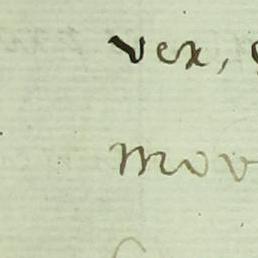 vex,
mov